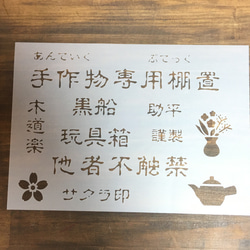 あんていく ぶてっく
手作物専用棚置
木道楽 黒船 助平
玩具箱 謹製
他者不触禁
サクラ印